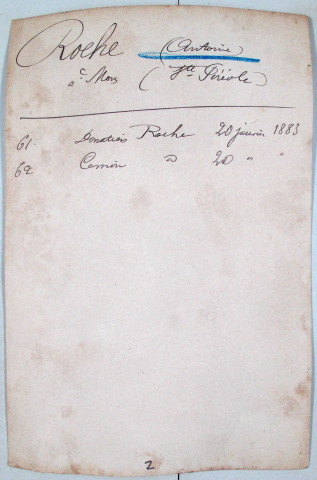 Roche (Antoine)
à Mons (Ste Féréole)
61. Donation Roche 20 janvier 1883
62 Cession D 20 " "
2